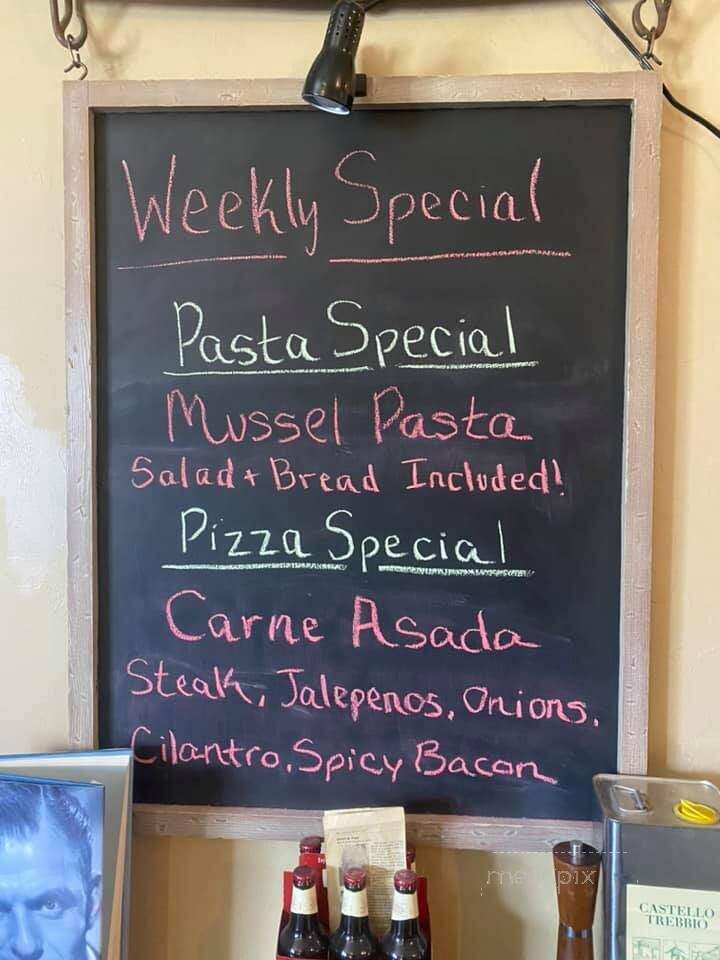 Weekly Special
Pasta Special
Mussel Pasta
Salad + Bread Included!
Pizza Special
Carne Asada
Steak, Jalepenos, Onions,
Cilantro, Spicy Bacon
CASTELLO
TREBBIO